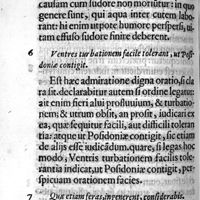 causam cum sudore non moritur: in quo
genere sunt, qui aqua inter cutem labo-
rant: hi enim utpote humore perspersi, ut-
ram effuso sudore finire deberent.
6 Ventres turbationem facile tolerant, ut Posi-
doniæ contigit.
Est hæc admiratione digna oratio, si cla
ra sit. declarabitur autem si ordine legatur:
at enim fieri alui profluuium, & turbatio-
nem; & utrum obsit, an prosit, iudicari ex
ea, quæ sequitur facili, aut difficili toleran
tia: atque ut Posidoniæ contigit, sic etiam
de alijs esse iudicandum. quare, si legas hoc
modo, Ventris turbationem facilis tole-
rantia indicat, ut Posidoniæ contigit, per-
spicuam orationem facies.
7 Quæ etiam feras, ingenerent, considerabis.